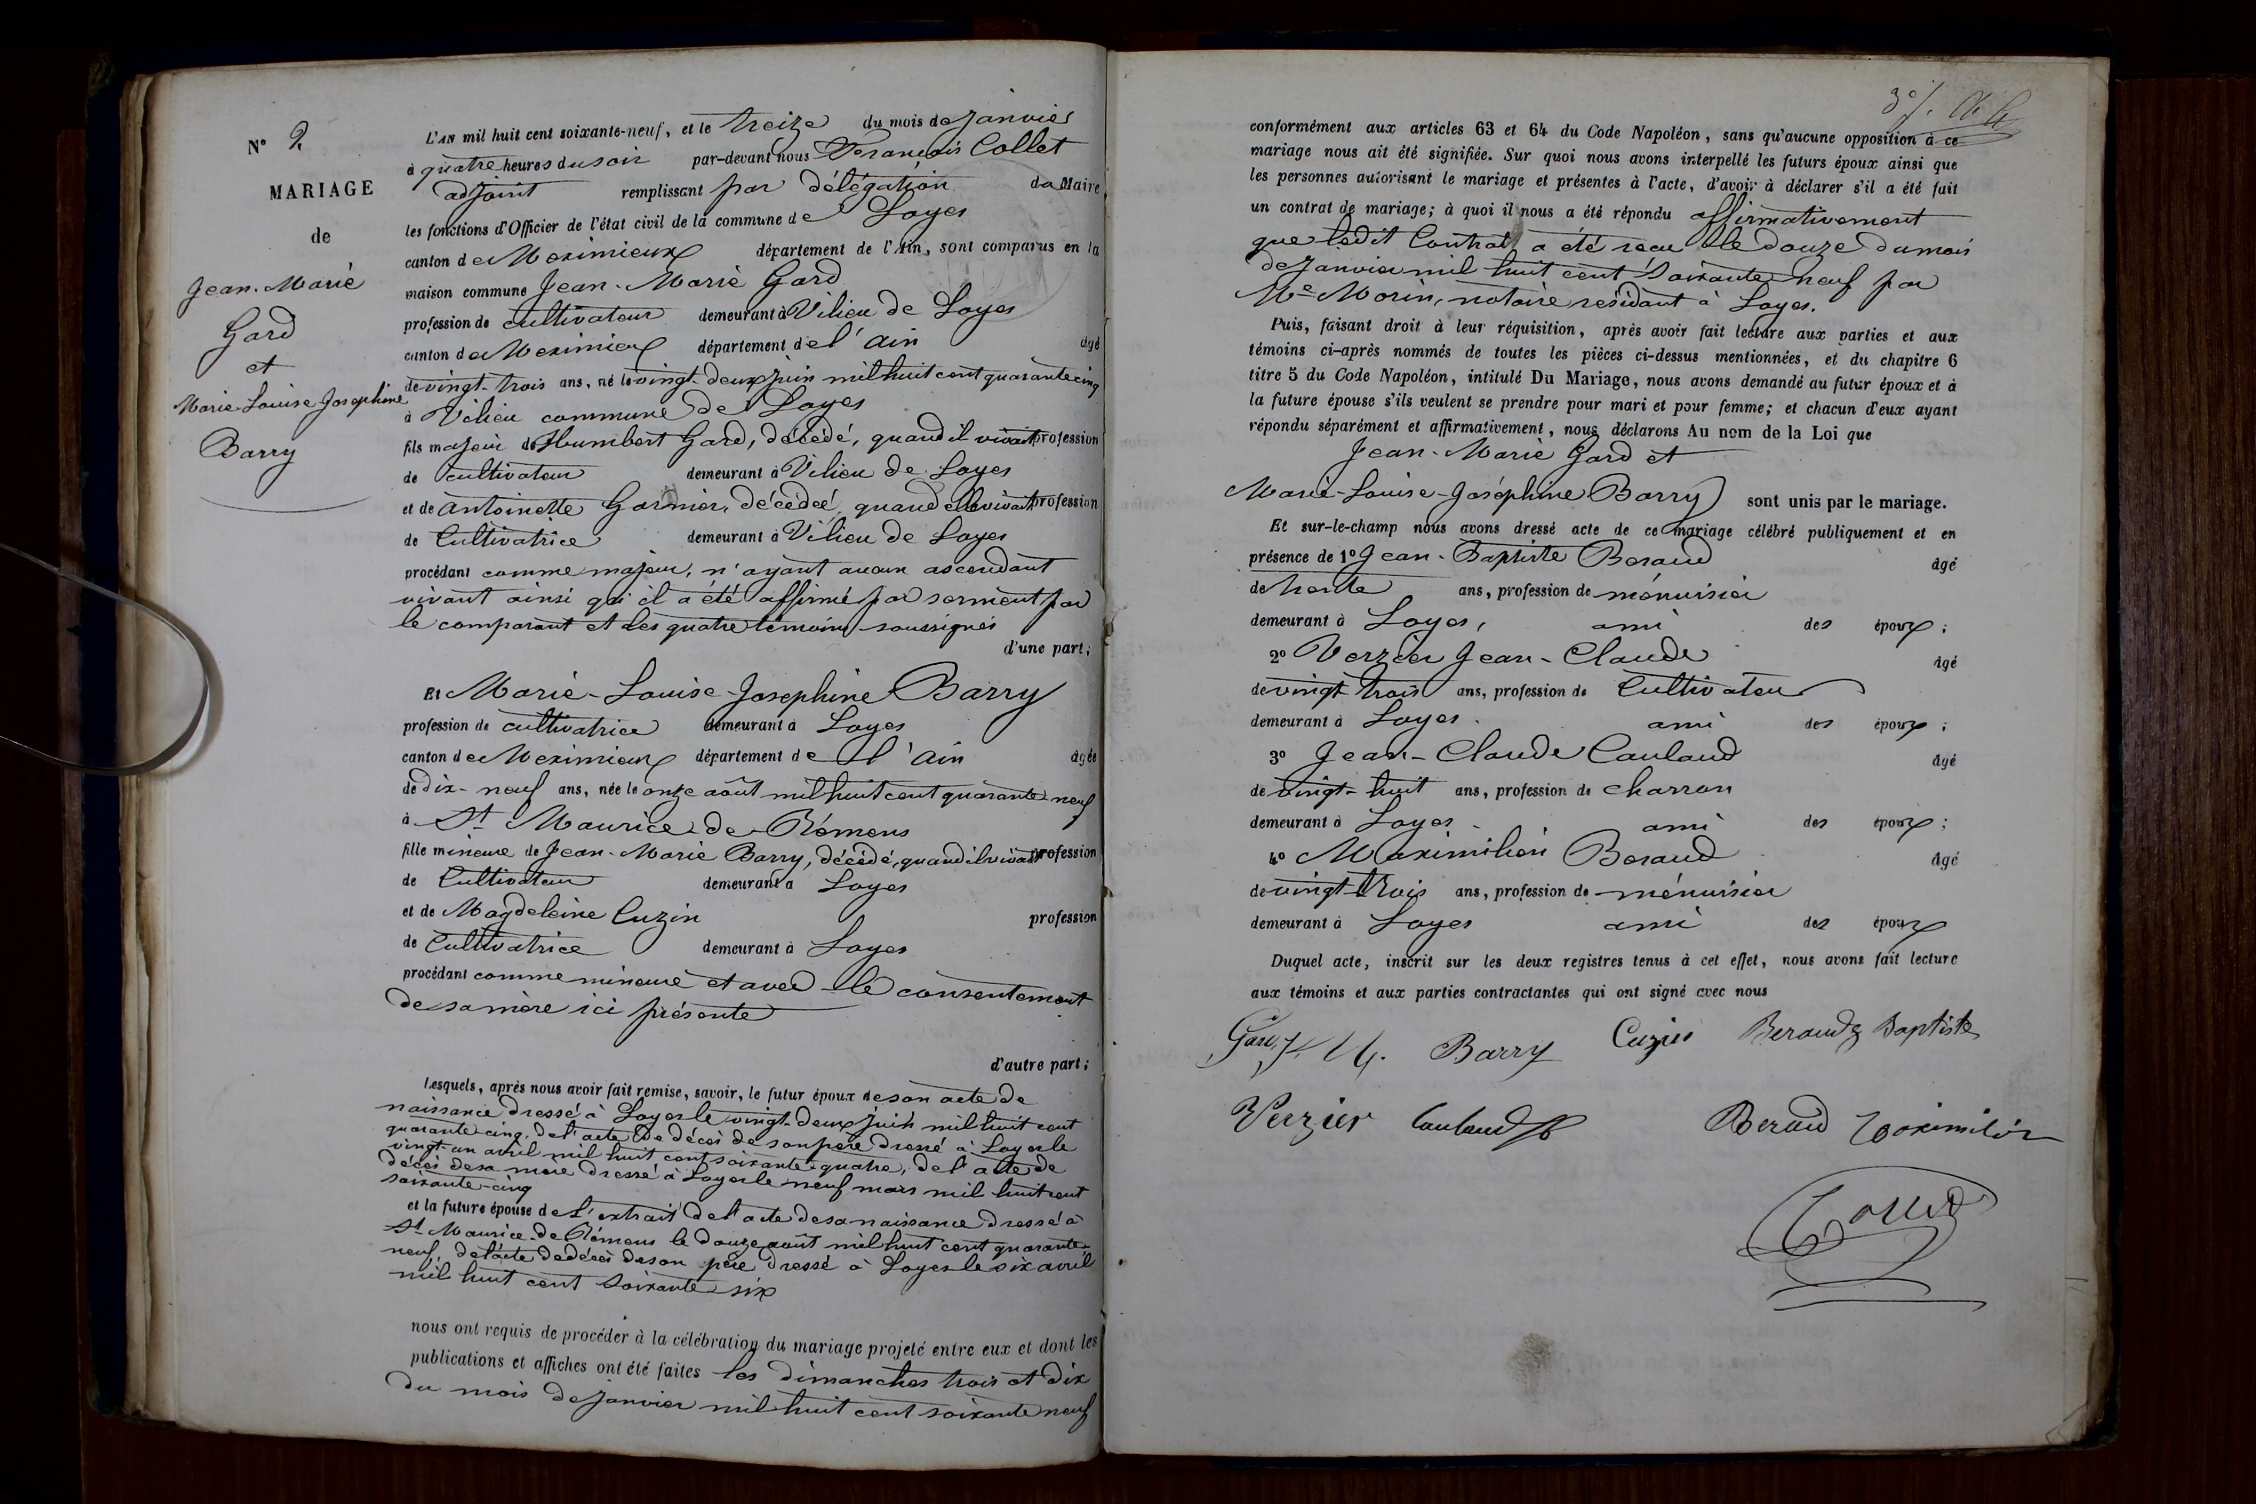 N° 2
MARIAGE
de
Jean-Marie
Gard
et
Marie Louise Josephine
Barry
L'AN mil huit cent soixante-neuf, et le treize du mois de Janvier
à quatre heures du soir par-devant nous François Collet
adjoint remplissant par délégation du Maire
les fonctions d'Officier de l'état civil de la commune de Loyes
canton de Meximieux département de l'Ain, sont comparus en la
maison commune Jean-Marie Gard
profession de cultivateur demeurant à Vilieu de Loyes
canton de Meximieux département de l'Ain âgé
de vingt-trois ans, né le vingt-deux juin mil huit cent quarante cinq
à Vilieu commune de Loyes
fils majeur de Humbert Gard, décédé, quand il vivait profession
de cultivateur demeurant à Vilieu de Loyes
et de Antoinette Garnier, décédée, quand elle vivait profession
de Cultivatrice demeurant à Vilieu de Loyes
procédant comme majeur, n'ayant aucun ascendant
vivant ainsi qu'il a été affirmé par serment par
le comparant et les quatre témoins soussignés
d'une part;
Et Marie-Louise-Josephine Barry
profession de cultivatrice demeurant à Loyes
canton de Meximieux département de l'Ain âgée
de dix-neuf ans, née le onze août mil huit cent quarante neuf
à St Maurice-de-Rémens
fille mineure de Jean-Marie Barry, décédé, quand il vivait profession
de Cultivateur demeurant à Loyes
et de Magdeleine Cuzin profession
de Cultivatrice demeurant à Loyes
procédant comme mineure et avec le consentement
de sa mère ici présente
d'autre part;
Lesquels, après nous avoir fait remise, savoir, le futur époux de son acte de
naissance dressé à Loyes le vingt-deux juin mil huit cent
quarante-cinq, de l'acte de décès de son père dressé à Loyes le
vingt-un avril mil huit cent soixante-quatre, de l'acte de
décès de sa mère dressé à Loyes le neuf mars mil huit cent
soixante-cinq
et la future épouse de l'extrait de l'acte de sa naissance dressé à
St Maurice-de-Rémens le douze août mil huit cent quarante-
neuf, de l'acte de décès de son père dressé à Loyes le six avril
mil huit cent soixante six
nous ont requis de procéder à la célébration du mariage projeté entre eux et dont les
publications et affiches ont été faites les dimanches trois et dix
du mois de janvier mil huit cent soixante neuf
conformément aux articles 63 et 64 du Code Napoléon, sans qu'aucune opposition à ce
mariage nous ait été signifiée. Sur quoi nous avons interpellé les futurs époux ainsi que
les personnes autorisant le mariage et présentes à l'acte, d'avoir à déclarer s'il a été fait
un contrat de mariage; à quoi il nous a été répondu affirmativement
que ledit Contrat a été recu le douze du mois
de Janvier mil huit cent soixante neuf par
Me Morin, notaire résidant à Loyes.
Puis, faisant droit à leur réquisition, après avoir fait lecture aux parties et aux
témoins ci-après nommés de toutes les pièces ci-dessus mentionnées, et du chapitre 6
titre 5 du Code Napoléon, intitulé Du Mariage, nous avons demandé au futur époux et à
la future épouse s'ils veulent se prendre pour mari et pour femme; et chacun d'eux ayant
répondu séparément et affirmativement, nous déclarons Au nom de la Loi que
Jean-Marie Gard et
Marie-Louise-Joséphine Barry sont unis par le mariage.
Et sur-le-champ nous avons dressé acte de ce mariage célébré publiquement et en
présence de 1° Jean-Baptiste Beraud âgé
de trente ans, profession de ménuisier
demeurant à Loyes, ami des époux;
2° Verzier Jean-Claude âgé
de vingt trois ans, profession de Cultivateur
demeurant à Loyes. ami des époux;
3° Jean-Claude Caulaud âgé
de vingt-huit ans, profession de charron
demeurant à Loyes ami des époux;
4° Maximilien Beraud âgé
de vingt-trois ans, profession de ménuisier
demeurant à Loyes ami des époux
Duquel acte, inscrit sur les deux registres tenus à cet effet, nous avons fait lecture
aux témoins et aux parties contractantes qui ont signé avec nous
Gard J. M. Barry Cuzin Beraud Baptiste
Verzier Caulaud Beraud Maximilien
Collet